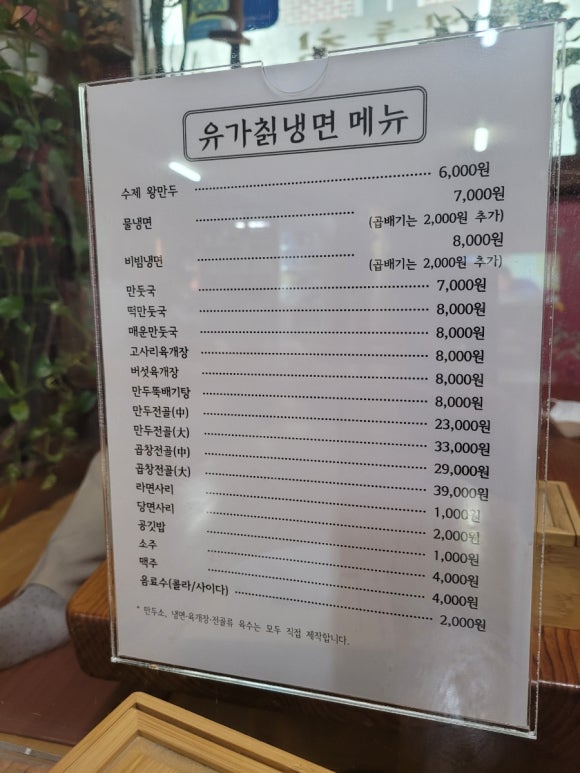 유가칡냉면 메뉴
수제 왕만두 6,000원
물냉면 7,000원
(곱배기는 2,000원 추가)
비빔냉면 8,000원
(곱배기는 2,000원 추가)
만둣국 7,000원
떡만둣국 8,000원
매운만둣국 8,000원
고사리육개장 8,000원
버섯육개장 8,000원
만두뚝배기탕 8,000원
만두전골(中) 23,000원
만두전골(大) 33,000원
곱창전골(中) 29,000원
곱창전골(大) 39,000원
라면사리 1,000원
당면사리 2,000원
공깃밥 1,000원
소주 4,000원
맥주 4,000원
음료수(콜라/사이다) 2,000원
* 만두소, 냉면·육개장·전골류 육수는 모두 직접 제작합니다.